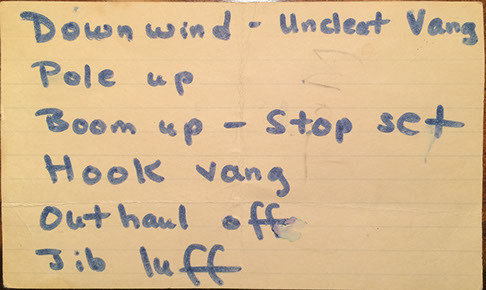 Downwind - Uncleat Vang
Pole up
Boom up - Stop set
Hook vang
Outhaul off
Jib luff